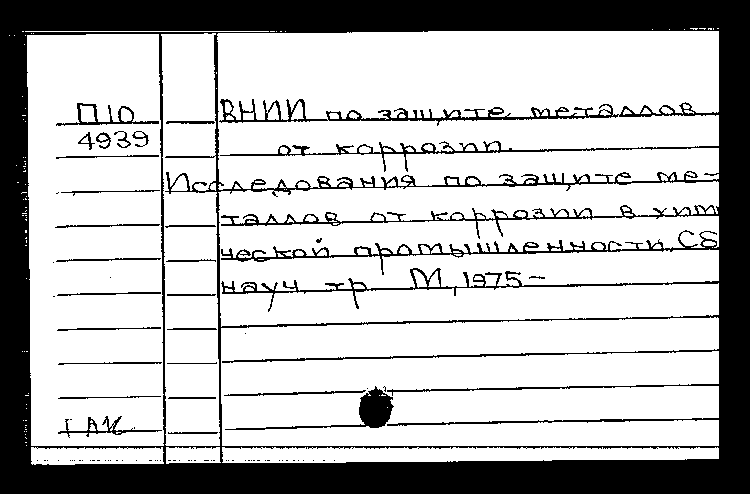 П10
4939
ВНИИ по защите металлов
от коррозии.
Исследования по защите ме-
таллов от коррозии в хим
ческой промышленности. Сб
науч. тр. М, 1975-